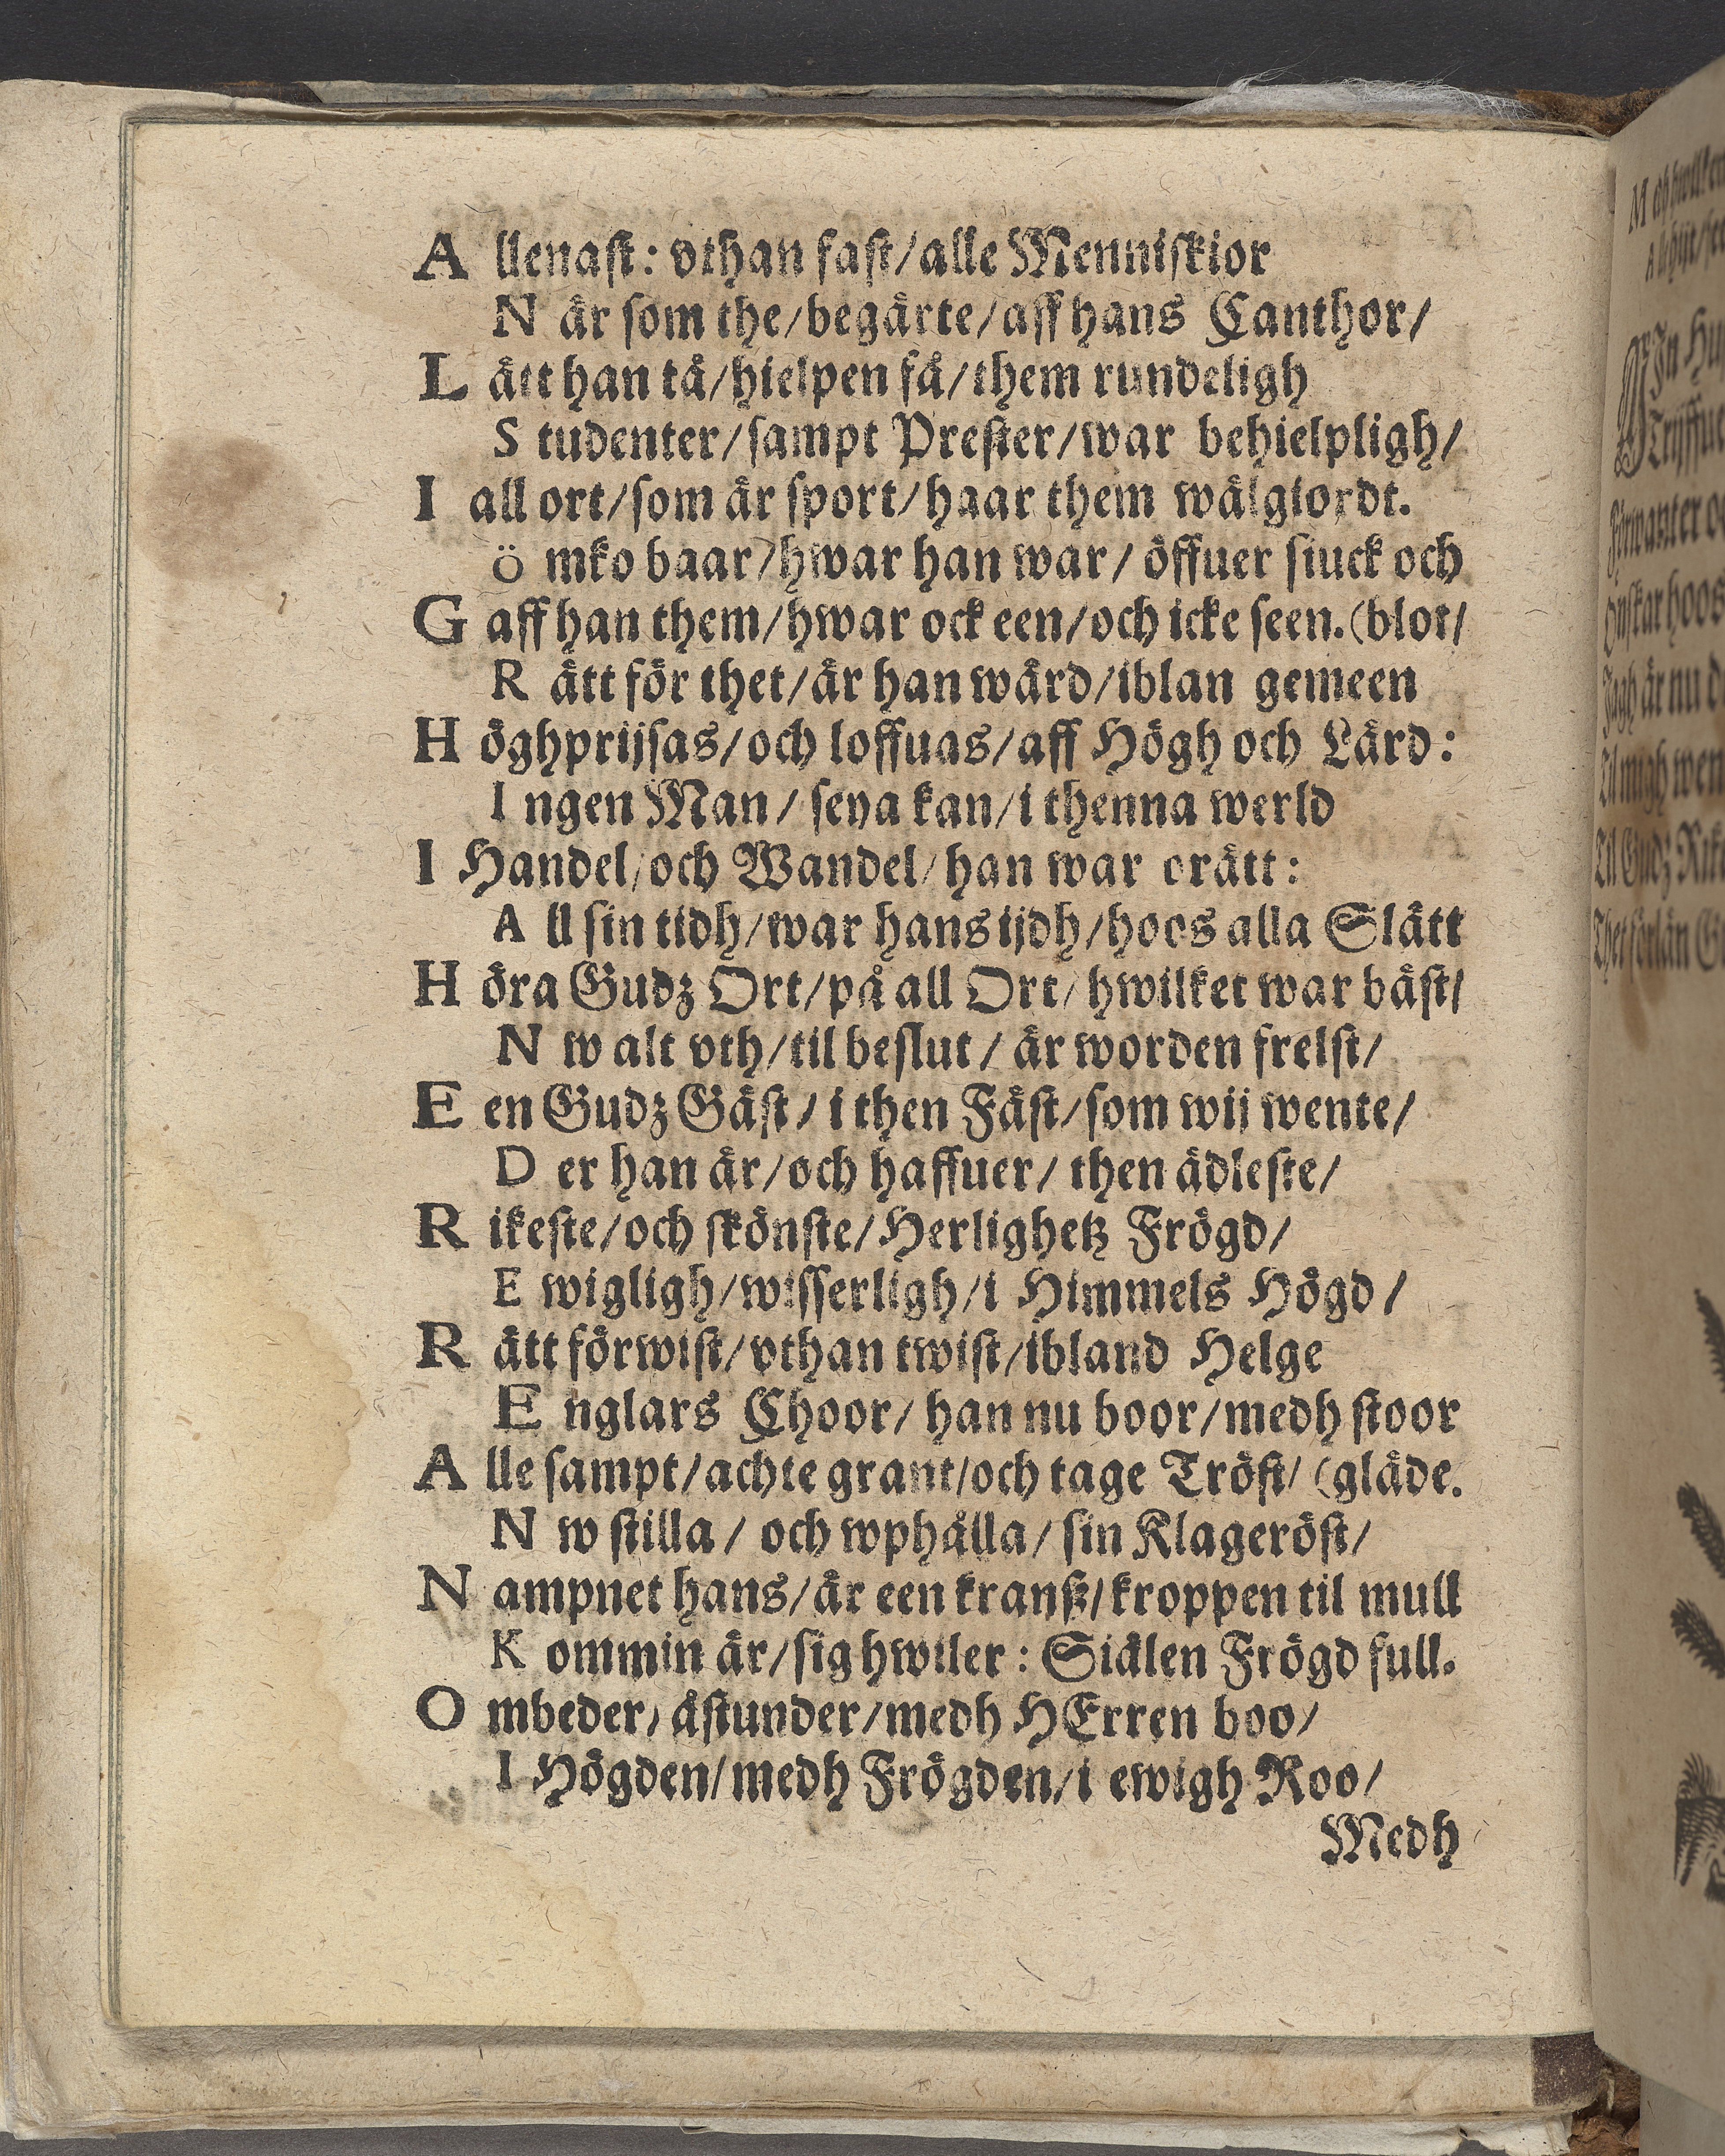 A llenast: vthan fast/alle Menniskior
N är som the/begärte/aff hans Canthor/
L ätt han tå/hielpen få/them rundeligh
S tudenter/sampt Prester/war behielpligh/
I all ort/som är sport/haar them wälgiordt.
ö mko baar/hwar han war/ öffuer siuck och
G aff han them/hwar ock een/och icke seen. (blot/
R ätt för thet/är han wärd/iblan gemeen
H öghprijsas/och loffuas/aff Högh och Lärd:
I ngen Man/ seya kan/i thenna werld
I Handel/och Wandel/han war orätt:
A ll sin tidh/war hans ijdh/hoos alla Slätt
H öra Gudz Ort/på all Ort/hwilket war bäst/
N w alt vth/til beslut/ är worden frelst/
E en Gudz Gäst/ i then Fäst/som wij wente/
D er han är/och haffuer/ then ädleste/
R ikeste/och skönste/Herlighetz Frögd/
E wigligh/wisserligh/i Himmels Högd/
R ätt förwist/vthan twist/ibland Helge
E nglars Choor/ han nu boor/medh stoor
A lle sampt/achte grant/och tage Tröst/ (gläde.
N w stilla/ och wphålla/ sin Klageröst/
N ampnet hans/är een kranß/kroppen til mull
K ommin är/sig hwiler: Siälen Frögd full.
O mbeder/ åstunder/medh HErren boo/
I Högden/medh Frögden/i ewigh Roo/
Medh
M
A
MIn